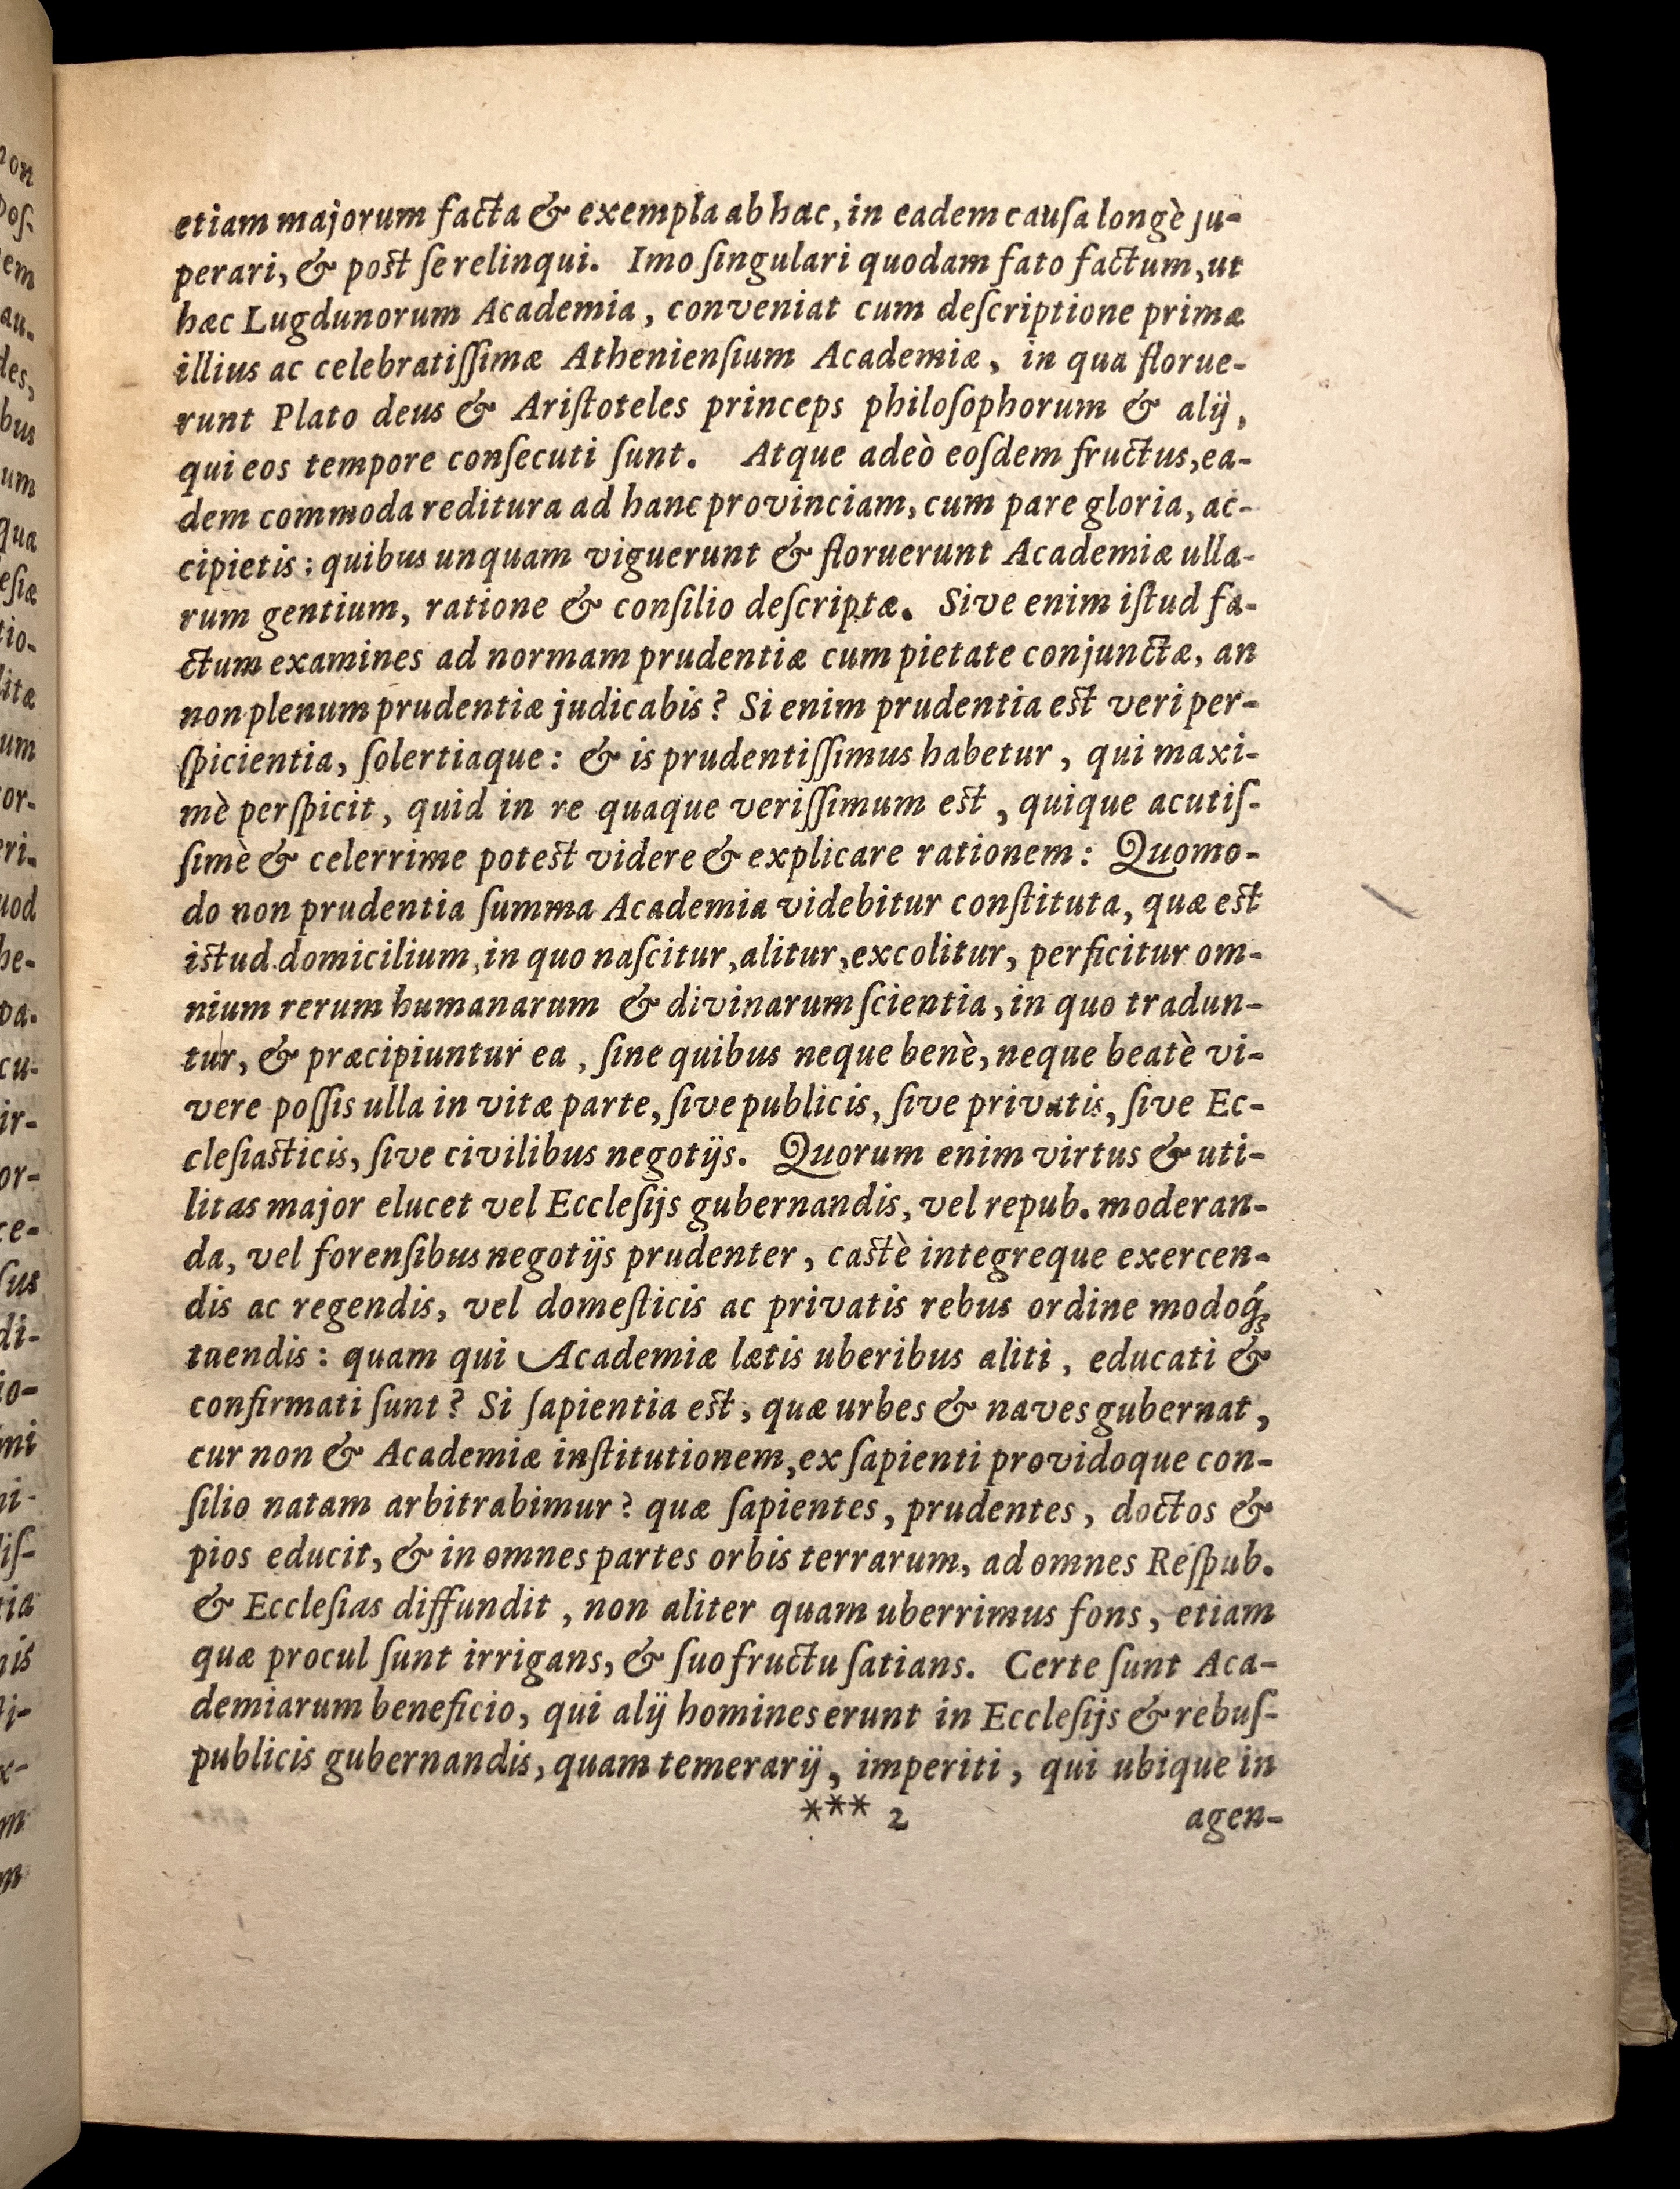 etiam majorum facta & exempla ab hac, in eadem causa longè ju-
perari, & post se relinqui. Imo ſingulari quodam fato factum, ut
hæc Lugdunorum Academia, conveniat cum deſcriptione primæ
illius ac celebratiſſimæ Athenienſium Academiæ, in qua florue-
runt Plato deus & Ariſtoteles princeps philoſophorum & alij,
qui eos tempore conſecuti ſunt. Atque adeò eoſdem fructus, ea-
dem commoda reditura ad hanc provinciam, cum pare gloria, ac-
cipietis: quibus unquam viguerunt & floruerunt Academiæ ulla-
rum gentium, ratione & conſilio deſcriptæ. Sive enim iſtud fa-
ctum examines ad normam prudentiæ cum pietate conjunctæ, an
non plenum prudentiæ judicabis? Si enim prudentia est veri per-
ſpicientia, ſolertiaque: & is prudentiſſimus habetur, qui maxi-
mè perſpicit, quid in re quaque veriſſimum est, quique acutiſ-
ſimè & celerrime potest videre & explicare rationem: Quomo-
do non prudentia ſumma Academia videbitur conſtituta, quæ est
istud domicilium, in quo naſcitur, alitur, excolitur, perficitur om-
nium rerum humanarum & divinarum ſcientia, in quo tradun-
tur, & præcipiuntur ea, ſine quibus neque benè, neque beatè vi-
vere poſſis ulla in vitæ parte, ſive publicis, ſive privatis, ſive Ec-
cleſiasticis, ſive civilibus negotijs. Quorum enim virtus & uti-
litas major elucet vel Eccleſijs gubernandis, vel repub. moderan-
da, vel forenſibus negotijs prudenter, castè integreque exercen-
dis ac regendis, vel domeſticis ac privatis rebus ordine modoq́;
tuendis: quam qui Academiæ lætis uberibus aliti, educati &
confirmati ſunt? Si ſapientia est, quæ urbes & naves gubernat,
cur non & Academiæ inſtitutionem, ex ſapienti providoque con-
ſilio natam arbitrabimur? quæ ſapientes, prudentes, doctos &
pios educit, & in omnes partes orbis terrarum, ad omnes Reſpub.
& Eccleſias diffundit, non aliter quam uberrimus fons, etiam
quæ procul ſunt irrigans, & ſuo fructu ſatians. Certe ſunt Aca-
demiarum beneficio, qui alij homines erunt in Eccleſijs & rebuſ-
publicis gubernandis, quam temerarij, imperiti, qui ubique in
*** 2 agen-